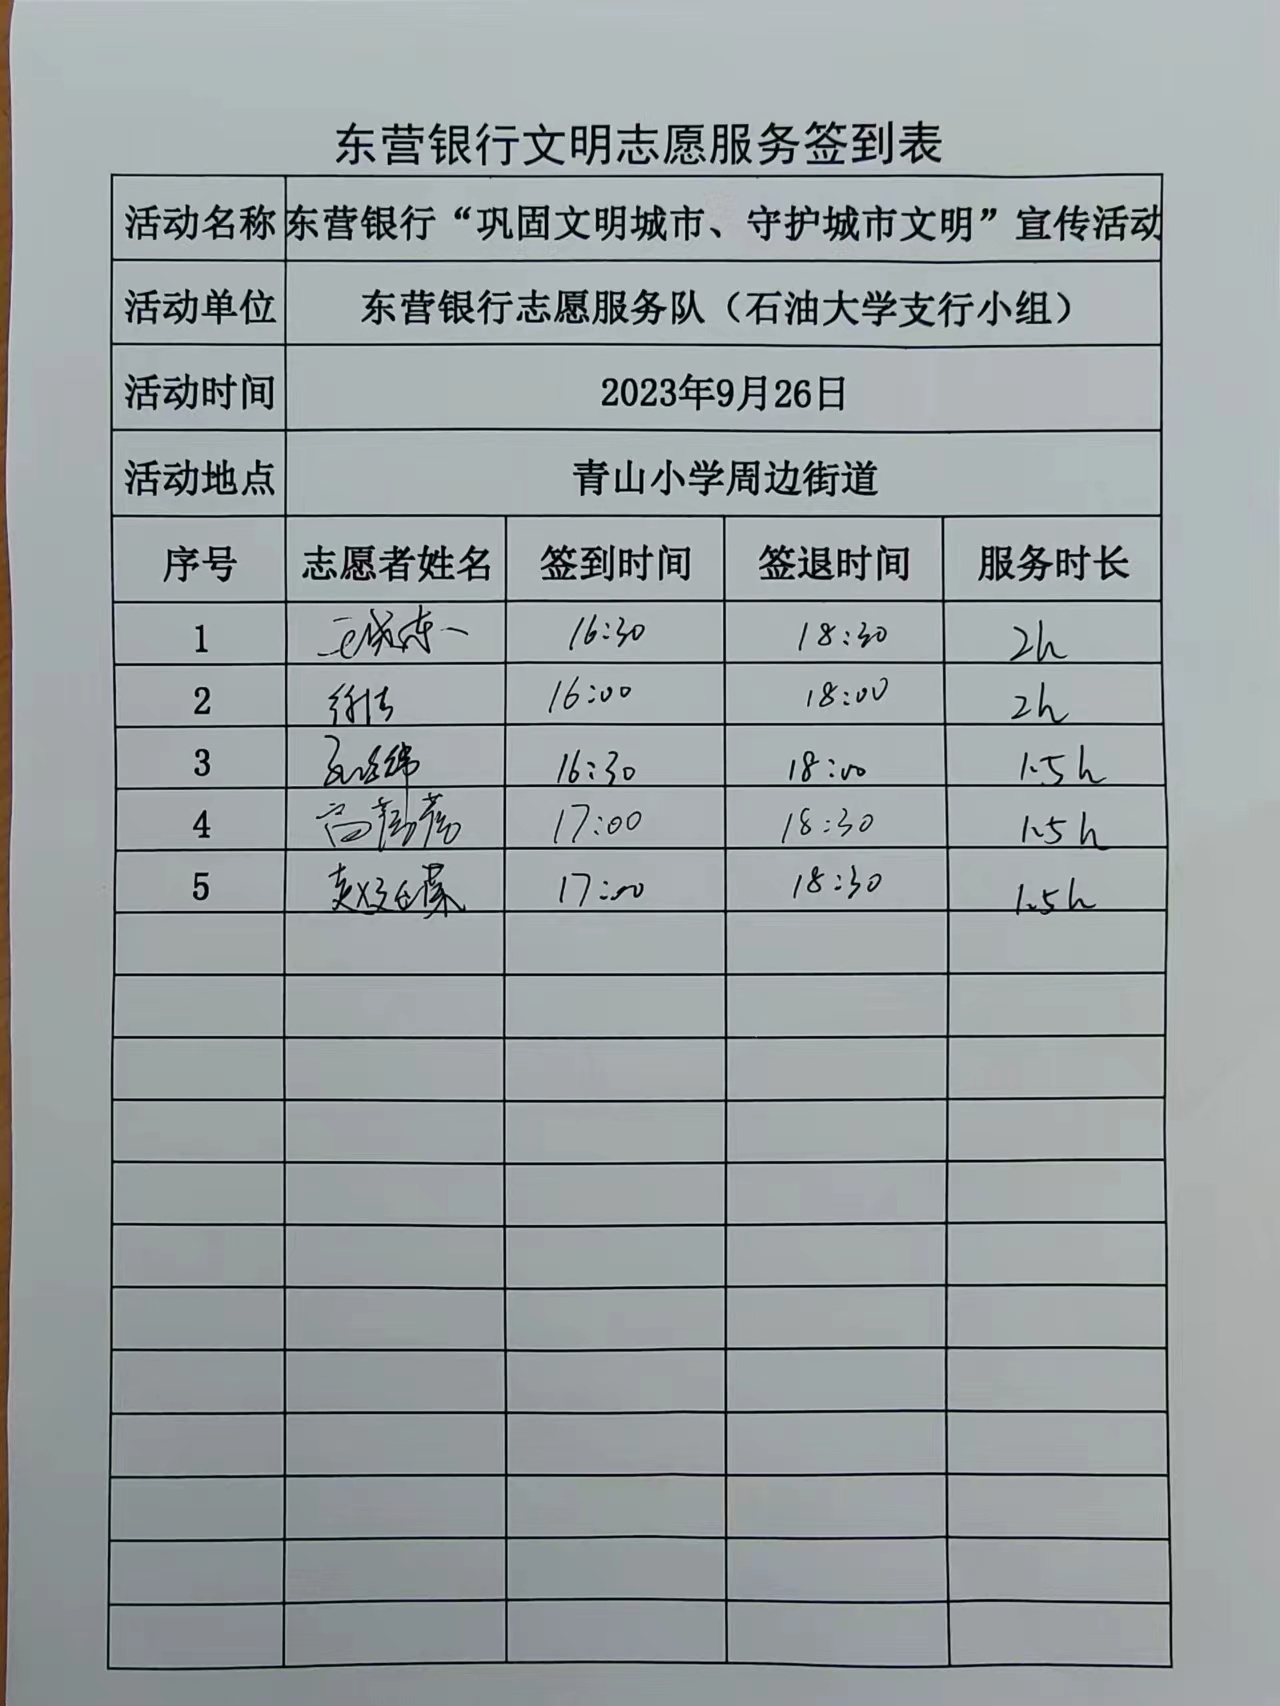 东营银行文明志愿服务签到表
活动名称 东营银行“巩固文明城市、守护城市文明”宣传活动
活动单位 东营银行志愿服务队（石油大学支行小组）
活动时间 2023年9月26日
活动地点 青山小学周边街道
序号 志愿者姓名 签到时间 签退时间 服务时长
1 16:30 18:30 2h
2 徐倩 16:00 18:00 2h
3 16:30 18:00 1.5h
4 17:00 18:30 1.5h
5 17:00 18:30 1.5h